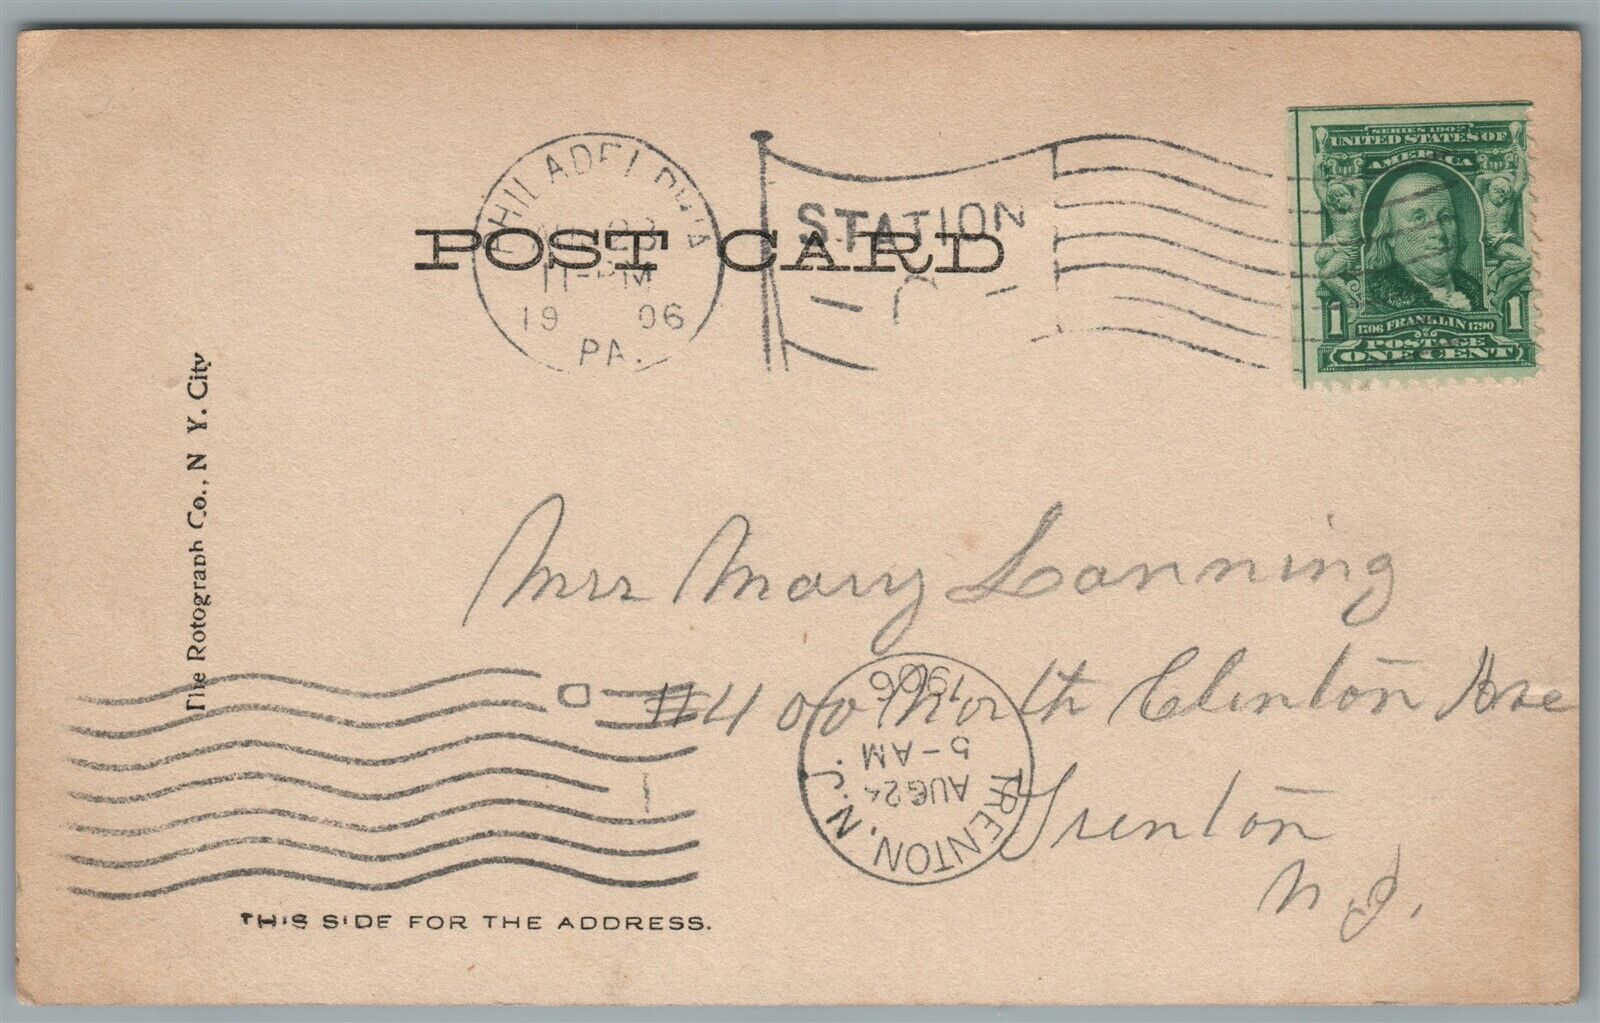 POST CARD
PHILADELPHIA
23
11-PM
19 06
PA.
STATION
SERIES 1902
UNITED STATES OF
AMERICA
1 1706 FRANKLIN 1790 1
POSTAGE
ONE CENT
The Rotograph Co., N Y. City
Mrs Mary Lanning
#400 North Clinton Ave
Trenton
N.J.
TRENTON, N.J.
AUG 24
5-AM
1906
THIS SIDE FOR THE ADDRESS.